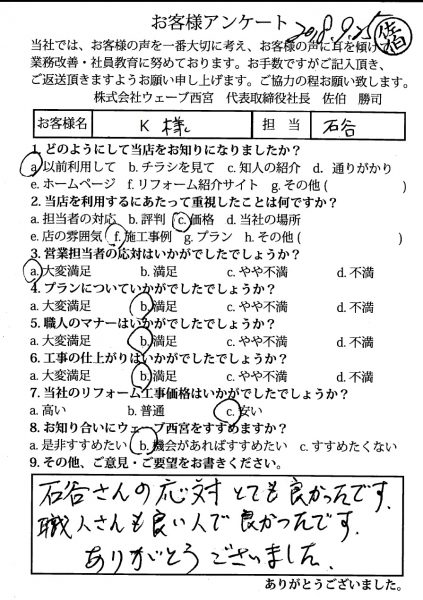 お客様アンケート 2018.9.25 佐伯
当社では、お客様の声を一番大切に考え、お客様の声に耳を傾け
業務改善・社員教育に努めております。お手数ですがご記入頂き、
ご返送頂きますようお願い申し上げます。ご協力の程お願い致します。
株式会社ウェーブ西宮 代表取締役社長 佐伯 勝司
お客様名 K 様 担 当 石谷
1. どのようにして当店をお知りになりましたか？
a.以前利用して b.チラシを見て c.知人の紹介 d.通りがかり
e.ホームページ f.リフォーム紹介サイト g.その他( )
2. 当店を利用するにあたって重視したことは何ですか？
a.担当者の対応 b.評判 c.価格 d.当社の場所
e.店の雰囲気 f.施工事例 g.プラン h.その他( )
3. 営業担当者の応対はいかがでしたでしょうか？
a.大変満足 b.満足 c.やや不満 d.不満
4. プランについていかがでしたでしょうか？
a.大変満足 b.満足 c.やや不満 d.不満
5. 職人のマナーはいかがでしたでしょうか？
a.大変満足 b.満足 c.やや不満 d.不満
6. 工事の仕上がりはいかがでしたでしょうか？
a.大変満足 b.満足 c.やや不満 d.不満
7. 当社のリフォーム工事価格はいかがでしたでしょうか？
a.高い b.普通 c.安い
8. お知り合いにウェーブ西宮をすすめますか？
a.是非すすめたい b.機会があればすすめたい c.すすめたくない
9. その他、ご意見・ご要望をお書きください。
石谷さんの応対とても良かったです.
職人さんも良い人で良かったです.
ありがとうございました.
ありがとうございました。